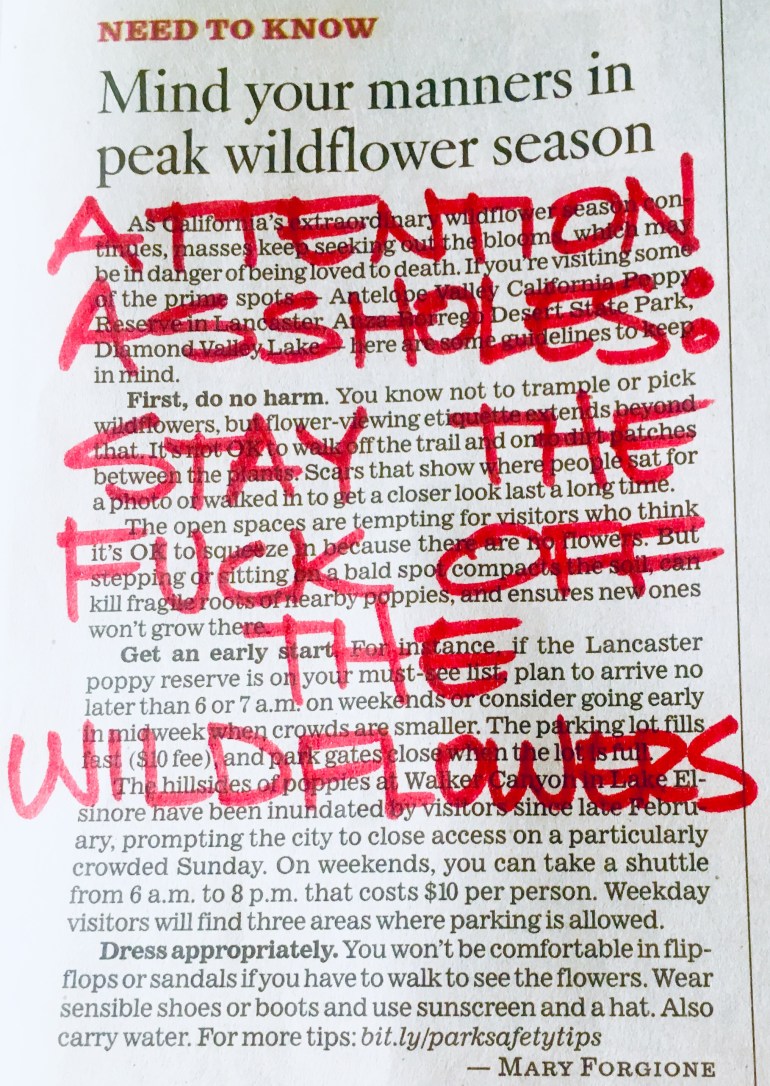 NEED TO KNOW
Mind your manners in
peak wildflower season
As California's extraordinary wildflower season con-
tinues, masses keep seeking out the blooms, which may
be in danger of being loved to death. If you're visiting some
of the prime spots — Antelope Valley California Poppy
Reserve in Lancaster, Anza-Borrego Desert State Park,
Diamond Valley Lake — here are some guidelines to keep
in mind.
First, do no harm. You know not to trample or pick
wildflowers, but flower-viewing etiquette extends beyond
that. It's not OK to walk off the trail and onto dirt patches
between the plants. Scars that show where people sat for
a photo or walked in to get a closer look last a long time.
The open spaces are tempting for visitors who think
it's OK to squeeze in because there are no flowers. But
stepping or sitting on a bald spot compacts the soil, can
kill fragile roots of nearby poppies, and ensures new ones
won't grow there.
Get an early start. For instance, if the Lancaster
poppy reserve is on your must-see list, plan to arrive no
later than 6 or 7 a.m. on weekends or consider going early
in midweek when crowds are smaller. The parking lot fills
fast ($10 fee), and park gates close when the lot is full.
The hillsides of poppies at Walker Canyon in Lake El-
sinore have been inundated by visitors since late Febru-
ary, prompting the city to close access on a particularly
crowded Sunday. On weekends, you can take a shuttle
from 6 a.m. to 8 p.m. that costs $10 per person. Weekday
visitors will find three areas where parking is allowed.
Dress appropriately. You won't be comfortable in flip-
flops or sandals if you have to walk to see the flowers. Wear
sensible shoes or boots and use sunscreen and a hat. Also
carry water. For more tips: bit.ly/parksafetytips
— MARY FORGIONE
ATTENTION
ASSHOLES:
STAY THE
FUCK OFF
THE
WILDFLOWERS